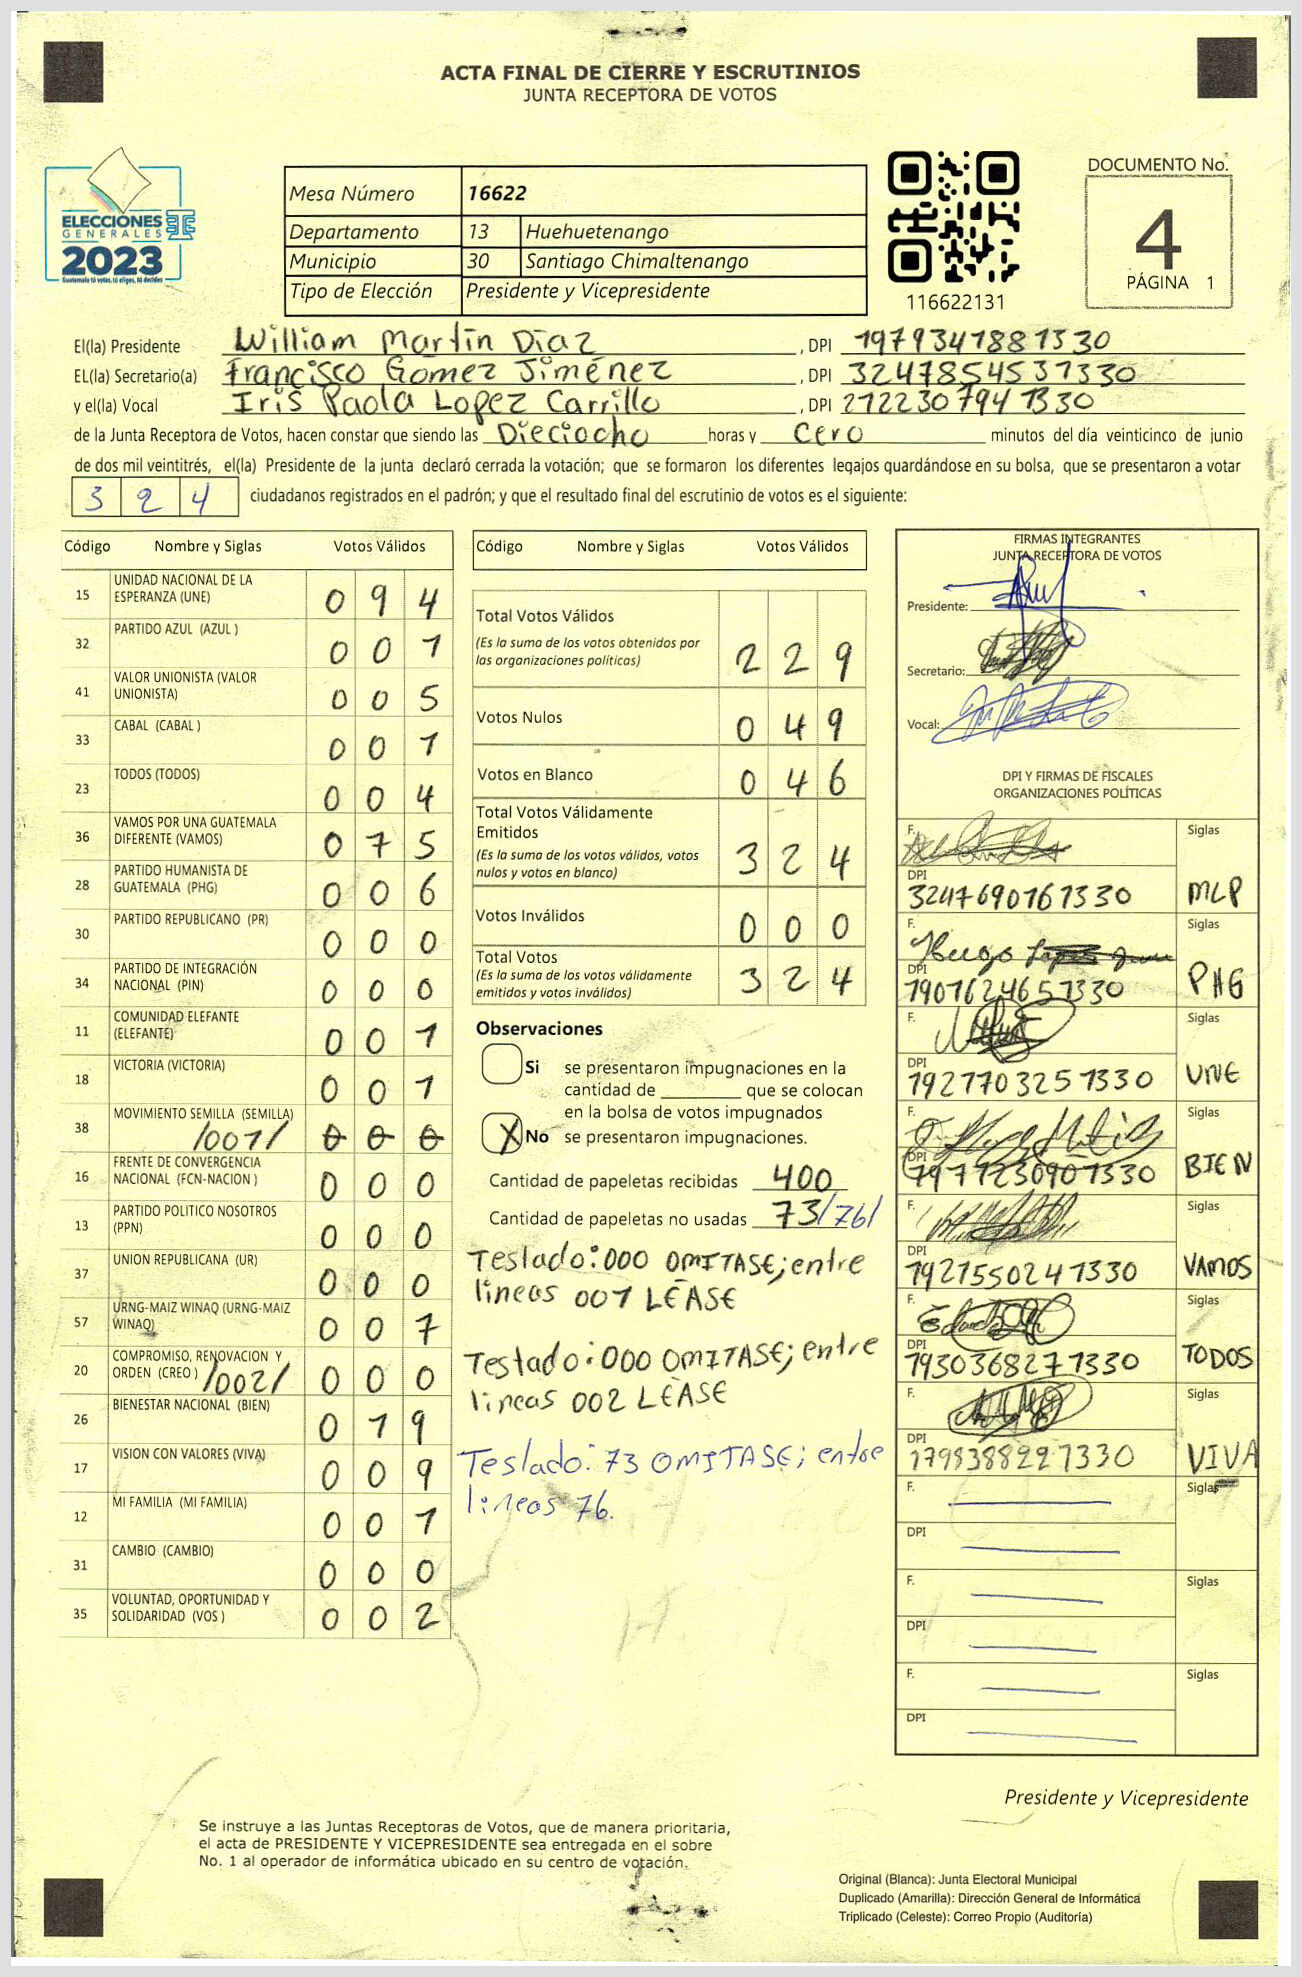 ACTA FINAL DE CIERRE Y ESCRUTINIOS
JUNTA RECEPTORA DE VOTOS
ELECCIONES
GENERALES
2023
Guatemala tú votas, tú eliges, tú decides
Mesa Número 16622
Departamento 13 Huehuetenango
Municipio 30 Santiago Chimaltenango
Tipo de Elección Presidente y Vicepresidente
116622131
DOCUMENTO No.
4
PÁGINA 1
El(la) Presidente William Martín Díaz , DPI 1979347881330
EL(la) Secretario(a) Francisco Gómez Jiménez , DPI 3247854531330
y el(la) Vocal Iris Paola Lopez Carrillo , DPI 2122307941330
de la Junta Receptora de Votos, hacen constar que siendo las Dieciocho horas y cero minutos del día veinticinco de junio
de dos mil veintitrés, el(la) Presidente de la junta declaró cerrada la votación; que se formaron los diferentes legajos guardándose en su bolsa, que se presentaron a votar
3 2 4 ciudadanos registrados en el padrón; y que el resultado final del escrutinio de votos es el siguiente:
Código Nombre y Siglas Votos Válidos
15 UNIDAD NACIONAL DE LA ESPERANZA (UNE) 0 9 4
32 PARTIDO AZUL (AZUL ) 0 0 1
41 VALOR UNIONISTA (VALOR UNIONISTA) 0 0 5
33 CABAL (CABAL ) 0 0 1
23 TODOS (TODOS) 0 0 4
36 VAMOS POR UNA GUATEMALA DIFERENTE (VAMOS) 0 7 5
28 PARTIDO HUMANISTA DE GUATEMALA (PHG) 0 0 6
30 PARTIDO REPUBLICANO (PR) 0 0 0
34 PARTIDO DE INTEGRACIÓN NACIONAL (PIN) 0 0 0
11 COMUNIDAD ELEFANTE (ELEFANTE) 0 0 1
18 VICTORIA (VICTORIA) 0 0 1
38 MOVIMIENTO SEMILLA (SEMILLA) /001/ 0 0 0
16 FRENTE DE CONVERGENCIA NACIONAL (FCN-NACION ) 0 0 0
13 PARTIDO POLITICO NOSOTROS (PPN) 0 0 0
37 UNION REPUBLICANA (UR) 0 0 0
57 URNG-MAIZ WINAQ (URNG-MAIZ WINAQ) 0 0 7
20 COMPROMISO, RENOVACION Y ORDEN (CREO ) /002/ 0 0 0
26 BIENESTAR NACIONAL (BIEN) 0 1 9
17 VISION CON VALORES (VIVA) 0 0 9
12 MI FAMILIA (MI FAMILIA) 0 0 1
31 CAMBIO (CAMBIO) 0 0 0
35 VOLUNTAD, OPORTUNIDAD Y SOLIDARIDAD (VOS ) 0 0 2
Código Nombre y Siglas Votos Válidos
Total Votos Válidos
(Es la suma de los votos obtenidos por
las organizaciones políticas) 2 2 9
Votos Nulos 0 4 9
Votos en Blanco 0 4 6
Total Votos Válidamente
Emitidos
(Es la suma de los votos válidos, votos
nulos y votos en blanco) 3 2 4
Votos Inválidos 0 0 0
Total Votos
(Es la suma de los votos válidamente
emitidos y votos inválidos) 3 2 4
Observaciones
Si se presentaron impugnaciones en la
cantidad de ________ que se colocan
en la bolsa de votos impugnados
X No se presentaron impugnaciones.
Cantidad de papeletas recibidas 400
Cantidad de papeletas no usadas 73/76/
Teslado: 000 OMITASE; entre
lineas 001 LEASE
Testado: 000 OMITASE; entre
lineas 002 LEASE
Teslado: 73 OMITASE; entre
lineas 76.
FIRMAS INTEGRANTES
JUNTA RECEPTORA DE VOTOS
Presidente:
Secretario:
Vocal:
DPI Y FIRMAS DE FISCALES
ORGANIZACIONES POLÍTICAS
F. Siglas
DPI
3247690761330 MLP
F. Hugo Siglas
DPI
1901624651330 PHG
F. Siglas
DPI
1927703251330 UNE
F. Siglas
DPI
1971230901330 BIEN
F. Siglas
DPI
1921550241330 VAMOS
F. Siglas
DPI
1930368271330 TODOS
F. Siglas
DPI
1798388221330 VIVA
F. Siglas
DPI
F. Siglas
DPI
F. Siglas
DPI
Presidente y Vicepresidente
Se instruye a las Juntas Receptoras de Votos, que de manera prioritaria,
el acta de PRESIDENTE Y VICEPRESIDENTE sea entregada en el sobre
No. 1 al operador de informática ubicado en su centro de votación.
Original (Blanca): Junta Electoral Municipal
Duplicado (Amarilla): Dirección General de Informática
Triplicado (Celeste): Correo Propio (Auditoría)